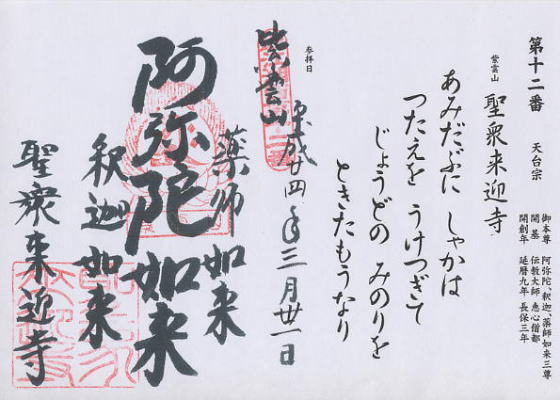 第十二番 天台宗
紫雲山 聖衆来迎寺
御本尊 阿弥陀、釈迦、薬師如来三尊
開基 伝教大師 恵心僧都
開創年 延暦九年 長保三年
あみだぶに しゃかは
つたえを うけつぎて
じょうどの みのりを
ときたもうなり
参拝日
平成廿四年三月卅一日
紫雲山
薬師如来
阿弥陀如来
釈迦如来
聖衆来迎寺